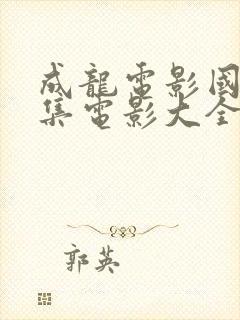 成龍電影國
集電影大全
郭英